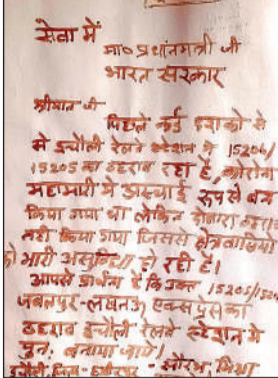 सेवा में
मा० प्रधानमंत्री जी
भारत सरकार
श्रीमान जी
पिछले कई दशकों से
से इचौली रेलवे स्टेशन में 15206/
15205 का ठहराव रहा है, कोरोना
महामारी में अस्थाई रूप से बन्द
किया गया था लेकिन दोबारा ठहराव
नहीं किया गया जिससे क्षेत्रवासियों
को भारी असुविधा हो रही है।
आपसे प्रार्थना है कि उक्त 15205/
जबलपुर - लखनऊ एक्सप्रेस का
ठहराव इचौली रेलवे स्टेशन में
पुनः बनाया जाये।
इचौली, जिला - हमीरपुर - सौरभ मिश्रा